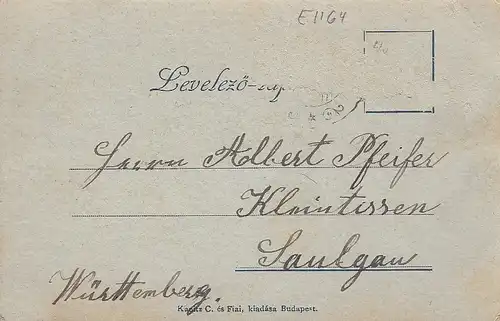 E1164
Levelező-lap
Herrn Albert Pfeifer
Kleintissen
Saulgau
Württemberg.
Kanitz C. és Fiai, kiadása Budapest.